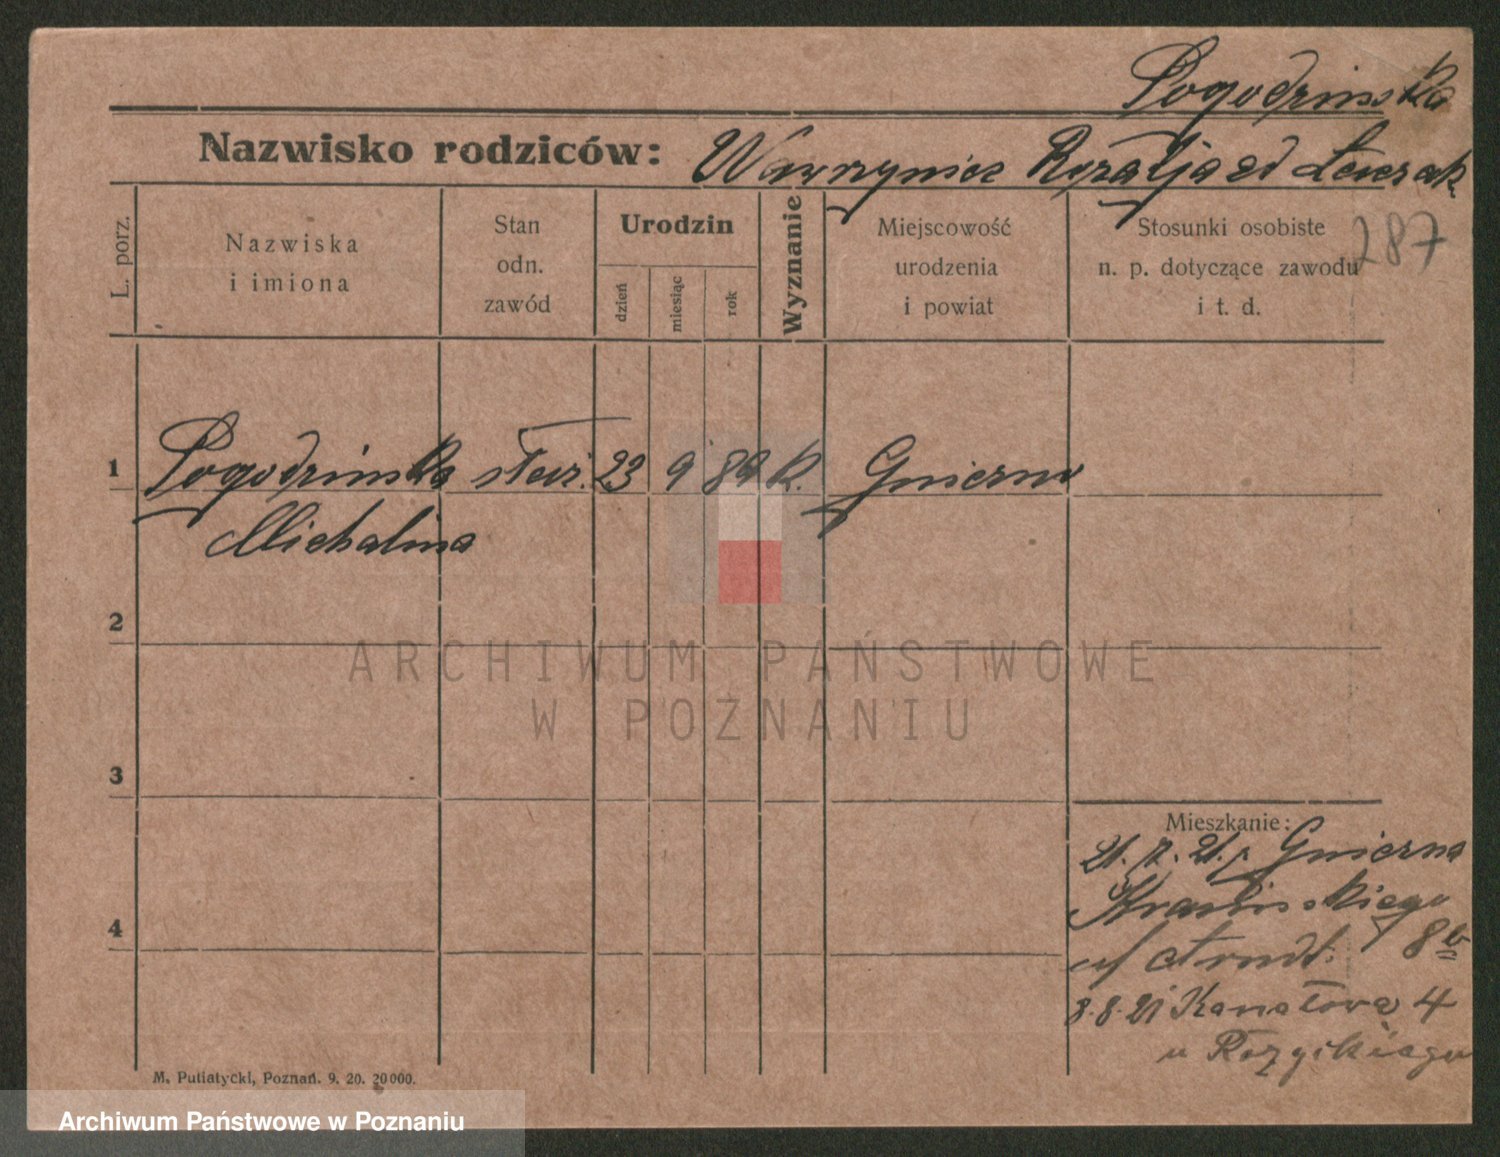 Pogodzinska
Nazwisko rodziców: Wawrzyniec Rozalja zd
287
L. porz.
Nazwiska i imiona
Stan odn. zawód
Urodzin
dzień
miesiąc
rok
Wyznanie
Miejscowość urodzenia i powiat
Stosunki osobiste n. p. dotyczące zawodu i t. d.
1 Pogodzinska 23 9 K. Gniezno
Michalina
2
3
4
Mieszkanie:
21. 21. z Gniezna
Krasinskiego 8
8.8.21 Kanałowa 4
u
M. Putiatycki, Poznań. 9. 20. 20000.
ARCHIWUM PAŃSTWOWE
W POZNANIU
Archiwum Państwowe w Poznaniu